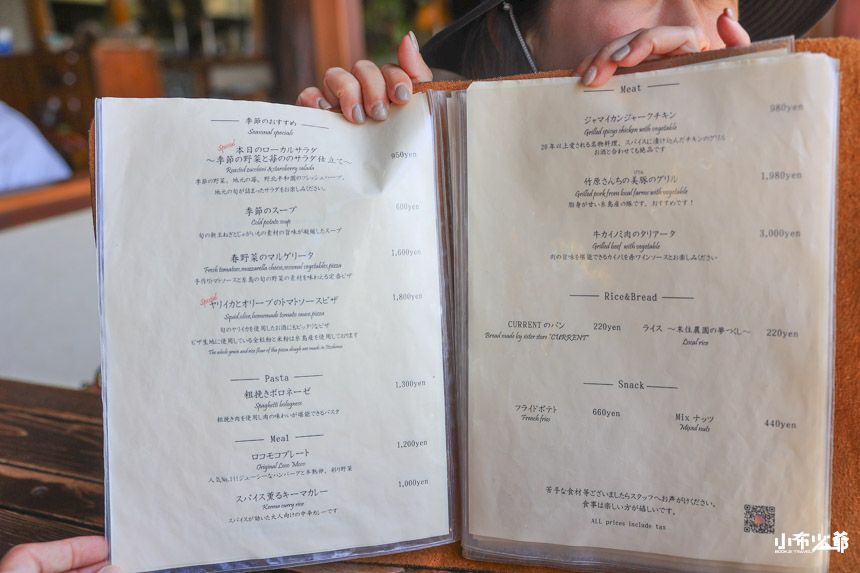 季節のおすすめ
Seasonal specials
Special
本日のローカルサラダ
～季節の野菜と苺ののサラダ仕立て～
950yen
Roasted zucchini &starsberry salada
季節の野菜、地元の苺、野北平和園のフレッシュハーブ。
地元の旬が詰まったサラダをお楽しみください。
季節のスープ
600yen
Cold potato soup
旬の新玉ねぎとじゃがいもの素材の旨味が凝縮したスープ
春野菜のマルゲリータ
1,600yen
Fresh tomatoes,mozzarella cheese,seasonal vegetables,pizza
手作りトマトソースと糸島の旬の野菜の素材を味わえる定番ピザ
Special
ヤリイカとオリーブのトマトソースピザ
1,800yen
Squid,olive,homemade tomato sauce,pizza
旬のヤリイカを使用したお酒にもピッタリなピザ
ピザ生地に使用している全粒粉と米粉は糸島産を使用しております
The whole grain and rice flour of the pizza dough are made in Itoshima
Pasta
粗挽きボロネーゼ
1,300yen
Spaghetti bolognese
粗挽き肉を使用し肉の味わいが堪能できるパスタ
Meal
ロコモコプレート
1,200yen
Original Loco Moco
人気No.1!!ジューシーなハンバーグと半熟卵、彩り野菜
スパイス薫るキーマカレー
1,000yen
Keema curry rice
スパイスが効いた大人向けの中辛カレーです
Meat
ジャマイカンジャークチキン
980yen
Grilled spicys chicken with vegetable
20年以上愛される名物料理。スパイスに漬け込んだチキンのグリル
お酒と合わせても絶品です
竹原さんちの美豚のグリル
1,980yen
Grilled pork from local farms with vegetable
脂身が甘い糸島産の豚です。おすすめです！
牛カイノミ肉のタリアータ
3,000yen
Grilled beef with vegetable
肉の旨味を堪能できるカイノミを赤ワインソースとお楽しみください
Rice&Bread
CURRENTのパン 220yen
Bread made by sister store "CURRENT"
ライス ～末住農園の夢つくし～ 220yen
Local rice
Snack
フライドポテト 660yen
French fries
Mixナッツ 440yen
Mixed nuts
苦手な食材等ございましたらスタッフへお声がけください。
食事は楽しい方が嬉しいです。
ALL prices include tax
小布少爺